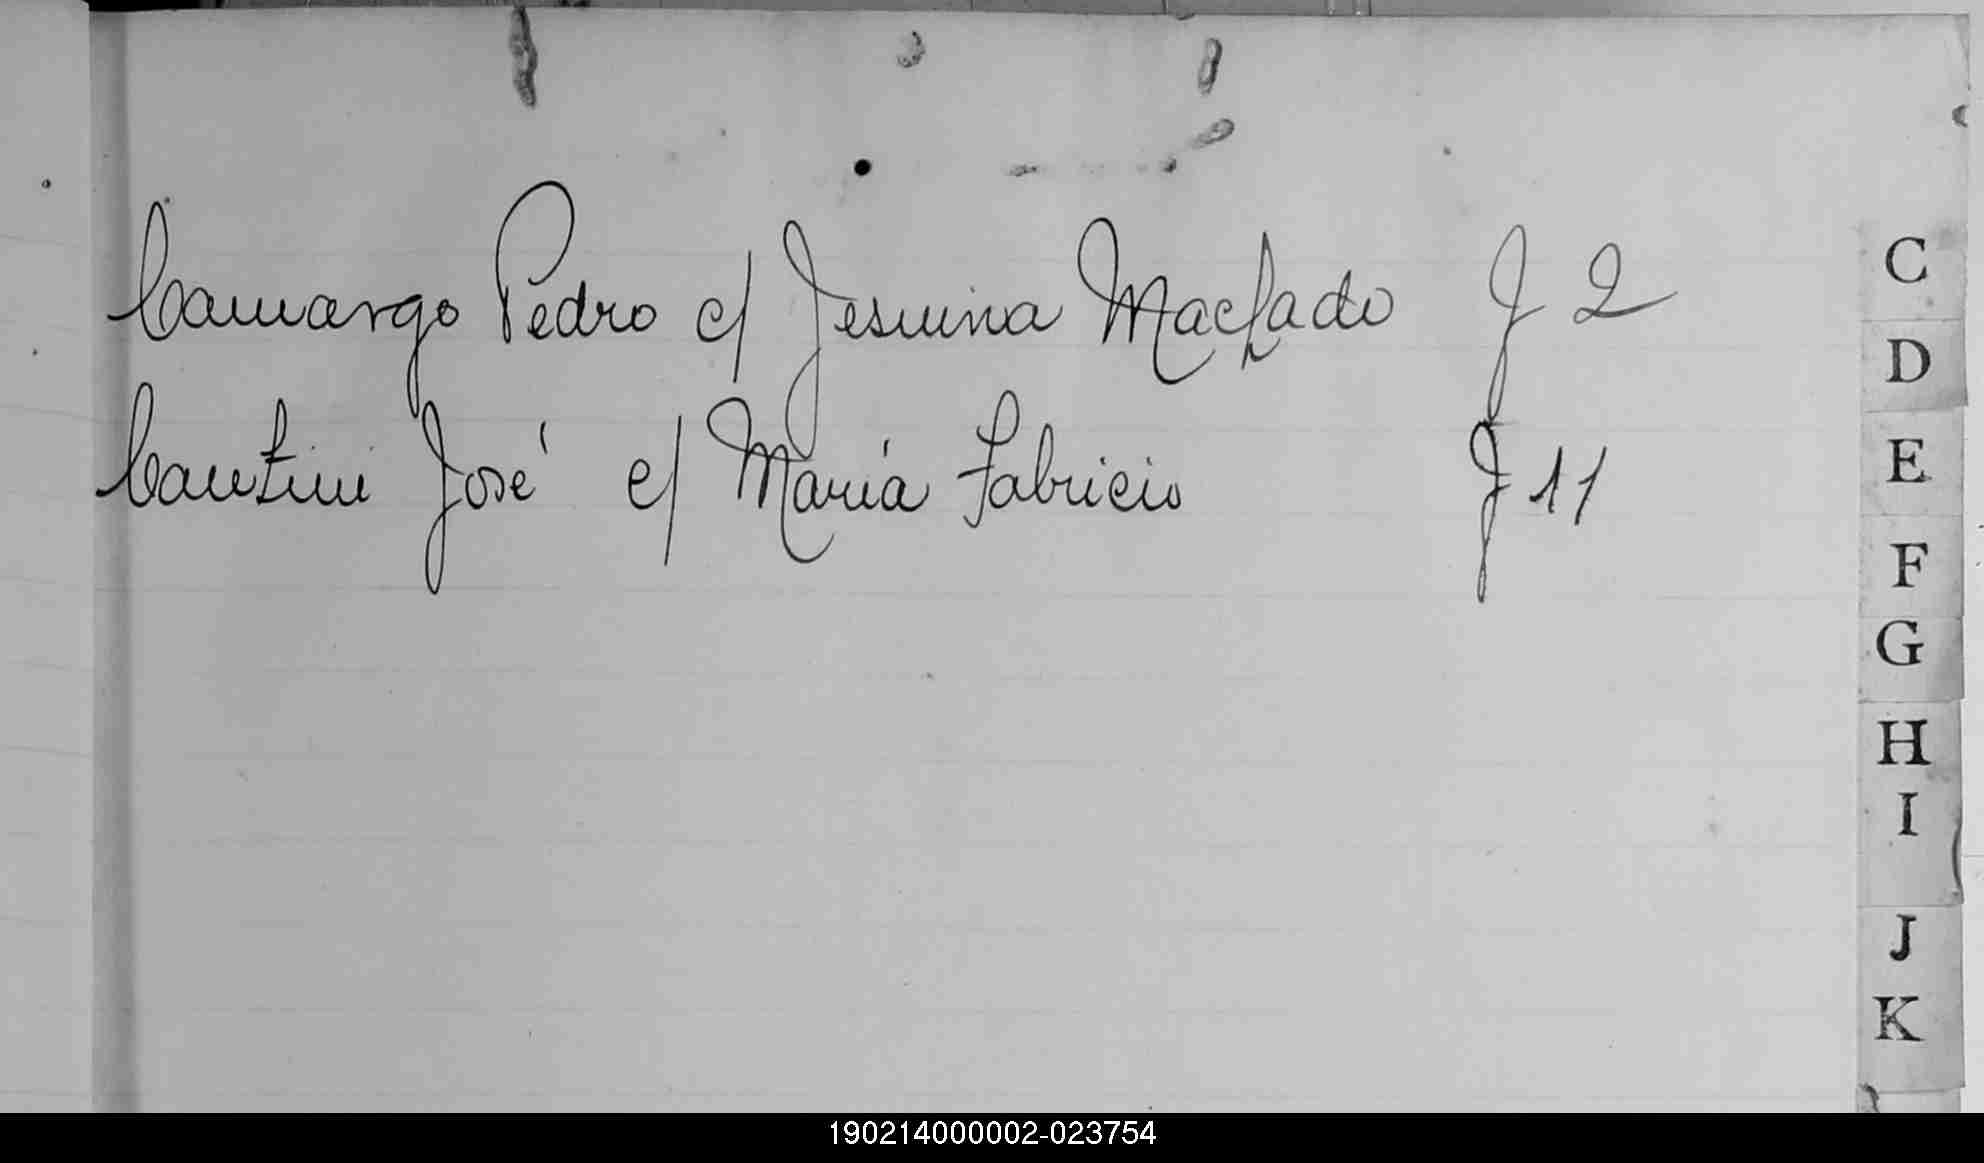 Camargo Pedro c/ Jesuina Machado J 2
Cantini José c/ María Fabricio J 11
C
D
E
F
G
H
I
J
K
190214000002-023754